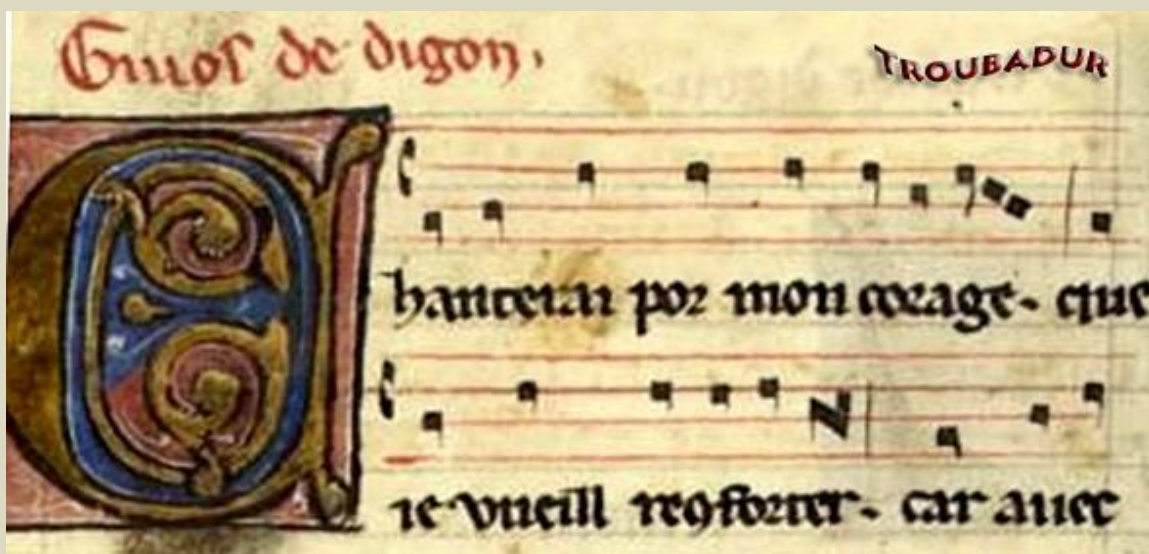 Guios de digon.
TROUBADUR
Chanterai por mon corage. que
ie vueill reꝯforter. car avec